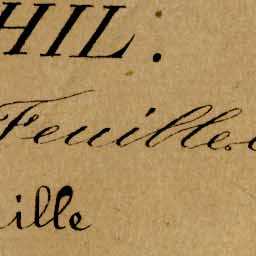 HIL.
Feuille.
ille